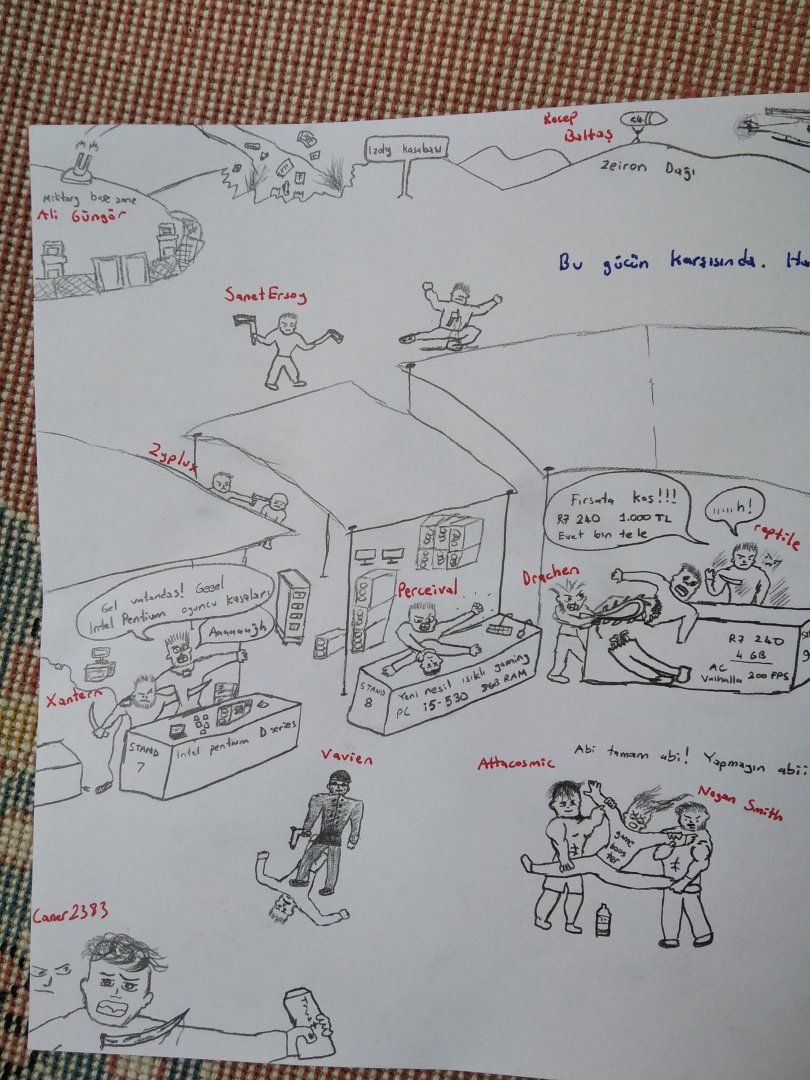 Recep
Baltaş
C4
Izdy kasabası
Zeiron Dağı
Military base zone
Ali Güngör
Bu gücün karşısında. Ha
SanetErsoy
Zyplux
Fırsata koş!!!
R7 240 1.000 TL
Evet bin tele
......h!
reptile
Drachen
Percival
Gel vatandaş! Geeel
Intel Pentium oyuncu kasaları
Aaaaaağh
Xantern
STAND
7
Intel pentium D series
STAND
8
Yeni nesil ışıklı gaming
PC i5-530 8GB RAM
R7 240
4 GB
AC
Valhalla 200 FPS
9
Vavien
Attacosmic
Abi tamam abi! Yapmayın abii
Negan Smith
game
boos
ter
Caner2383